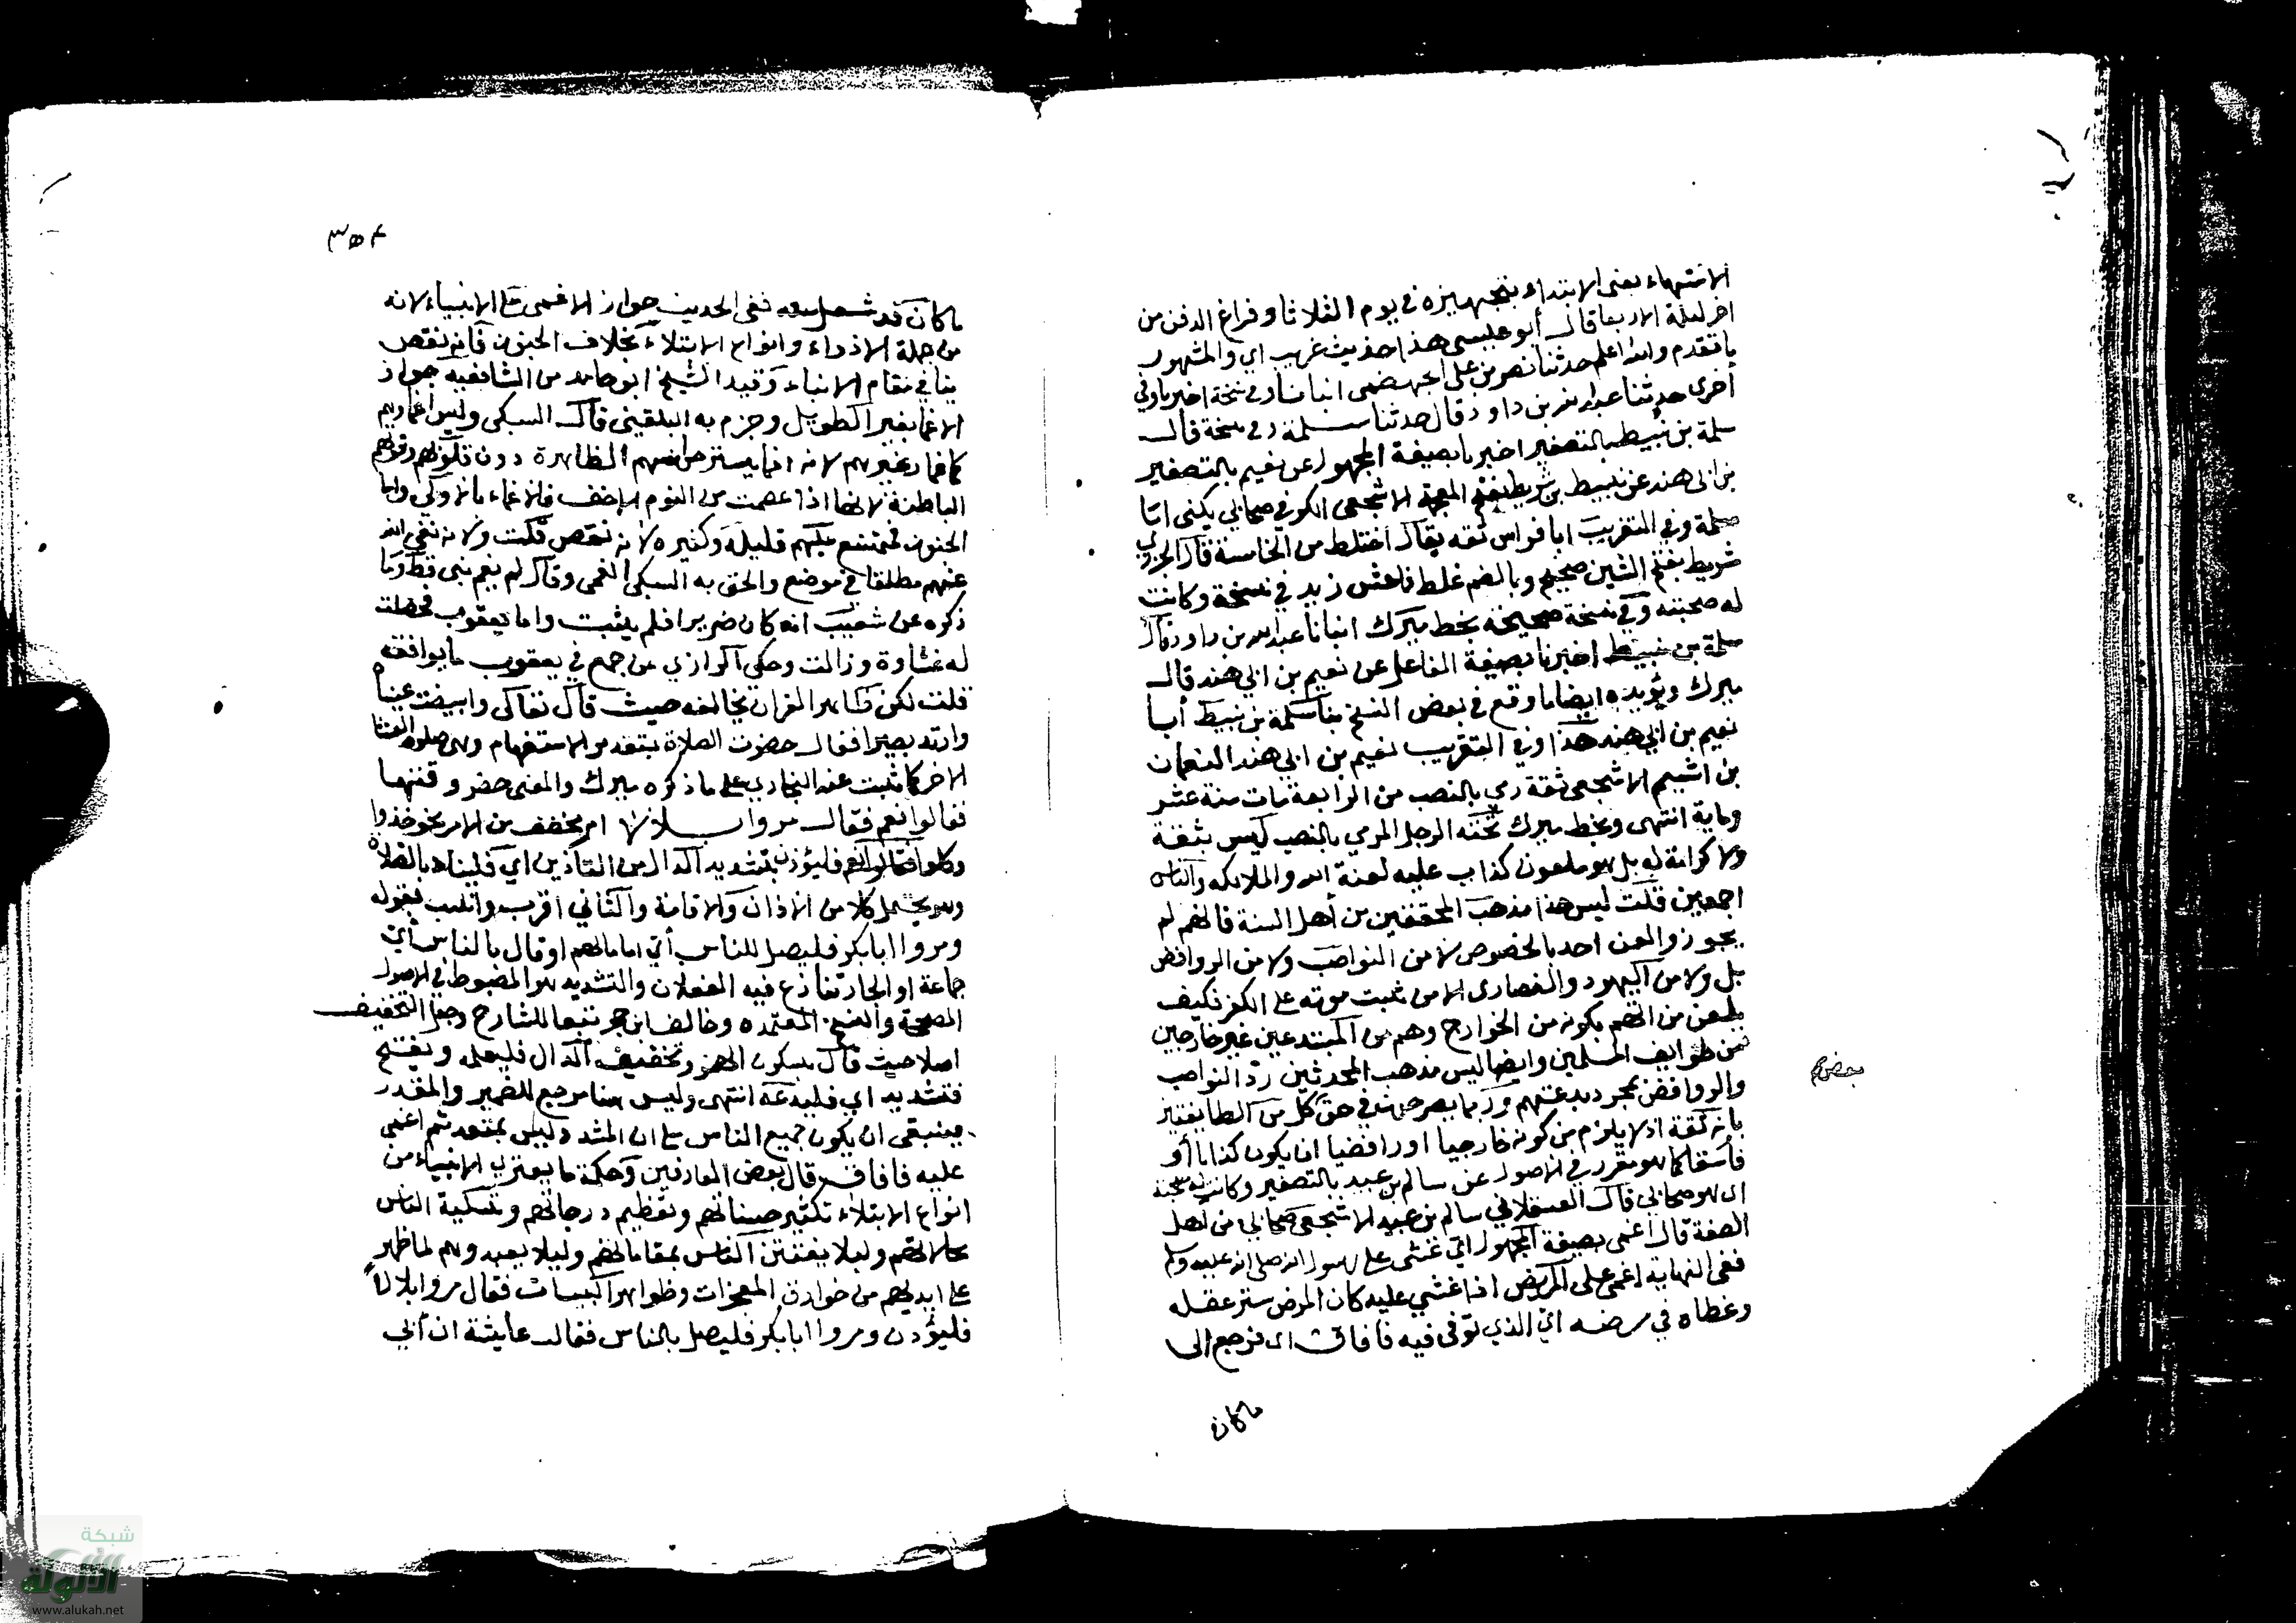 الانتهاء يعني الابتداء بتجهيزه في يوم الثلاثا وفراغ الدفن من
اخر ليلة الاربعا قال أبو عيسى هذا حديث غريب اي والمشهور
ما تقدم والله اعلم حدثنا نصر بن علي الجهضمي انبانا وفي نسخة اخبرنا وفي
أخرى حدثنا عبد الله بن داود قال حدثنا سلمة وفي نسخة قال
سلمة بن نبيط بالتصغير اخبرنا بصيغة المجهول عن نعيم بالتصغير
بن ابي هند عن نبيط بن شريط بفتح المعجمة الاشجعي الكوفي صحابي يكنى ابا
سلمة وفي التقريب ابا فراس ثقة يقال اختلط من الخامسة قال الجزري
شريط بفتح الشين صحيح وبالضم غلط فاحش زيد في نسخة وكانت
له صحبته وفي نسخة صحيحة بخط ميرك انبانا عبد الله بن داود قال
سلمة بن نبيط اخبرنا بصيغة الفاعل عن نعيم بن ابي هند قال
ميرك ويؤيده ايضا ما وقع في بعض النسخ بنا سلمة بن نبيط أنبا
نعيم بن ابي هند هذا وفي التقريب نعيم بن ابي هند النعمان
بن اشيم الاشجعي ثقة رمي بالنصب من الرابعة مات سنة عشر
وماية انتهى وبخط ميرك تحته الرجل المرمي بالنصب ليس بثقة
ولا كرامة له بل هو ملعون كذاب عليه لعنة الله والملائكه والناس
اجمعين قلت ليس هذا مذهب المحققين من أهل السنة فانهم لم
يجوزوا لعن احد بالخصوص لا من النواصب ولا من الروافض
بل ولا من اليهود والنصارى الا من ثبت موته على الكفر فكيف
يلعن من اتهم بكونه من الخوارج وهم من المبتدعين غير خارجين
من طوايف المسلمين وايضا ليس مذهب المحدثين رد النواصب
والروافض بمجرد بدعتهم وربما يصرحون في حق كل من الطايفتين
بعضهم
بانه ثقة اذ لا يلزم من كونه خارجيا او رافضيا ان يكون كذابا أو
فاسقا كما هو مقرر في الاصول عن سالم بن عبيد بالتصغير وكانت له صحبة
اي هو صحابي قال العسقلاني سالم بن عبيد الاشجعي صحابي من اهل
الصفة قال اغمي بصيغة المجهول اي غشي على رسول الله صلى الله عليه وسلم
ففي النهاية اغمي على المريض اذا غشي عليه كان المرض ستر عقله
وغطاه في مرضه اي الذي توفى فيه فافاق اي فرجع الى
ما كان
٣٥٤
ما كان قد شغل عنه ففي الحديث جواز الاغمى على الانبياء لانه
من جملة الادواء وانواع الابتلاء بخلاف الجنون فانه نقص
ينافي مقام الانباء وقيد الشيخ ابو حامد من الشافعيه جواز
الاغما بغير الطويل وجزم به البلقيني قال السبكي وليس اغماويهم
كاغما غيرهم لانه انما يستر حواسهم الظاهرة دون قلوبهم وقوتهم
الباطنة لانها اذا عصمت من النوم الاخف فالاغماء بالاولى واما
الجنون فيمتنع عليهم قليله وكثيره لانه نقص قلت ولانه نفي الله
عنهم مطلقا في موضع والحق به السبكي العمى وقال لم يعم نبي قط وما
ذكره عن شعيب انه كان ضريرا فلم يثبت واما يعقوب فحصلت
له غشاوة وزالت وحكى الرازي عن جمع في يعقوب ما يوافقه
قلت لكن ظاهر القران يخالفه حيث قال تعالى وابيضت عيناه
وارتد بصيرا فقال حضرت الصلاة بتقدير الاستفهام وهي صلوة العشا
الاخر كما ثبت عند البخاري على ما ذكره ميرك والمعنى حضر وقتها
فقالوا نعم فقال مروا بلالا امر مخفف من الامر نحو خذوا
وكلوا فليؤذن بتشديد الذال من التاذين اي فليناد بالصلاة
وهو يحتمل كلا من الاذان والاقامة والثاني اقرب وانسب بقوله
ومروا ابا بكر فليصل للناس أي اماما لهم او قال بالناس أي
جماعة او الجار تنازع فيه الفعلان والتشديد هو المضبوط في الاصول
المصححة والنسخ المعتمده وخالف ابن حجر تبعا للشارح وجعل التخفيف
اصلا حيث قال بسكون الهمز وتخفيف الذال فليعلمه وبفتح
فتشديد اي فليدعه انتهى وليس هنا مرجع للضمير والمقدر
ينبغي ان يكون جميع الناس على ان المشدد ليس بمتعد ثم اغمي
عليه فافاق قال بعض العارفين وحكمة ما يعتري الانبياء من
انواع الابتلاء تكثير حسناتهم وتعظيم درجاتهم وتسلية الناس
بحالاتهم وليلا يفتتن الناس بمقاماتهم وليلا يعبدوهم لما ظهر
على ايديهم من خوارق المعجزات وظواهر البينات فقال مروا بلالا
فليؤذن ومروا ابا بكر فليصل بالناس فقالت عايشة ان أبي
شبكة
الألوكة
www.alukah.net